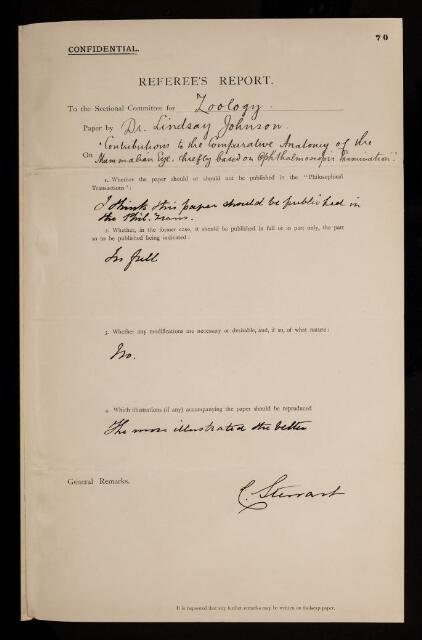 70
CONFIDENTIAL.
REFEREE'S REPORT.
To the Sectional Committee for Zoology.
Paper by Dr. Lindsay Johnson.
"Contributions to the Comparative Anatomy of the
On Mammalian Eye, chiefly based on Ophthalmoscopic Examination".
1. Whether the paper should or should not be published in the "Philosophical
Transactions":
I think this paper should be published in
the Phil. Trans.
2. Whether, in the former case, it should be published in full or in part only, the part
so to be published being indicated:
In full
3. Whether any modifications are necessary or desirable, and, if so, of what nature:
No.
4. Which illustrations (if any) accompanying the paper should be reproduced
The more illustrated the better
General Remarks.
C. Stewart
It is requested that any further remarks may be written on foolscap paper.